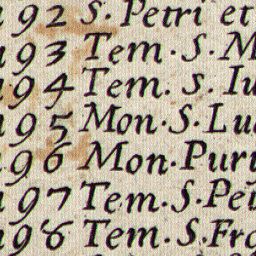 92 S. Petri et
93 Tem. S. M
94 Tem. S. Iu
95 Mon. S. Lu
96 Mon. Puri
97 Tem. S. Pet
98 Tem. S. Fra